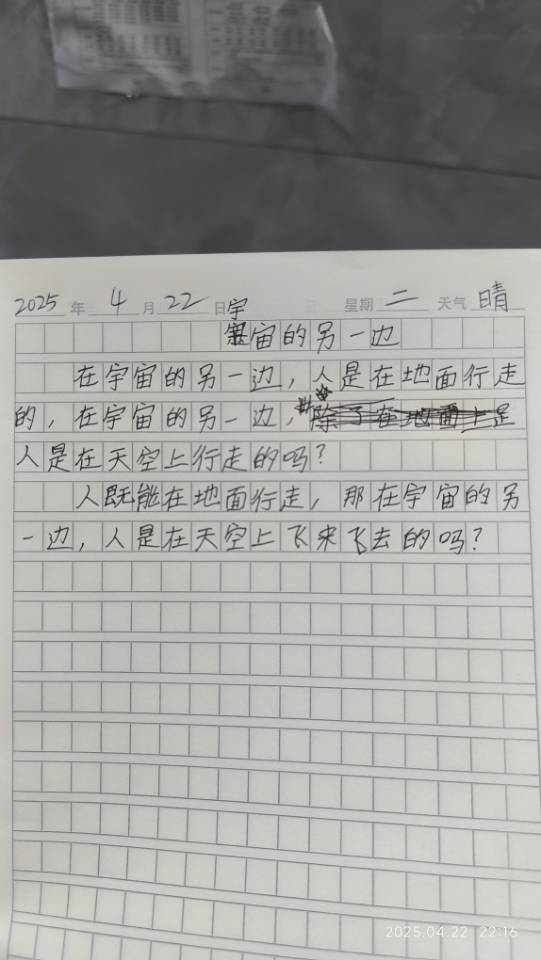 2025年4月22日 星期二 天气晴
宇宙的另一边
在宇宙的另一边，人是在地面行走
的，在宇宙的另一边，
人是在天空上行走的吗？
人既能在地面行走，那在宇宙的另
一边，人是在天空上飞来飞去的吗？
2025.04.22 22:16